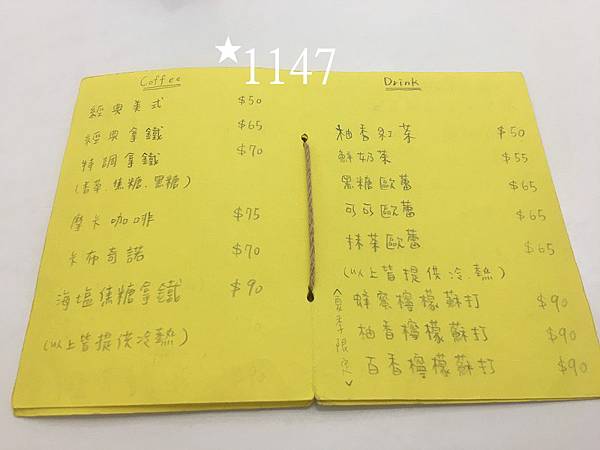 ★1147
Coffee
經典美式 $50
經典拿鐵 $65
特調拿鐵 $70
(香草.焦糖.黑糖)
摩卡咖啡 $75
卡布奇諾 $70
海塩焦糖拿鐵 $90
(以上皆提供冷熱)
Drink
柚香紅茶 $50
鮮奶茶 $55
黑糖歐蕾 $65
可可歐蕾 $65
抹茶歐蕾 $65
(以上皆提供冷.熱)
<夏季限定>
蜂蜜檸檬蘇打 $90
柚香檸檬蘇打 $90
百香檸檬蘇打 $90